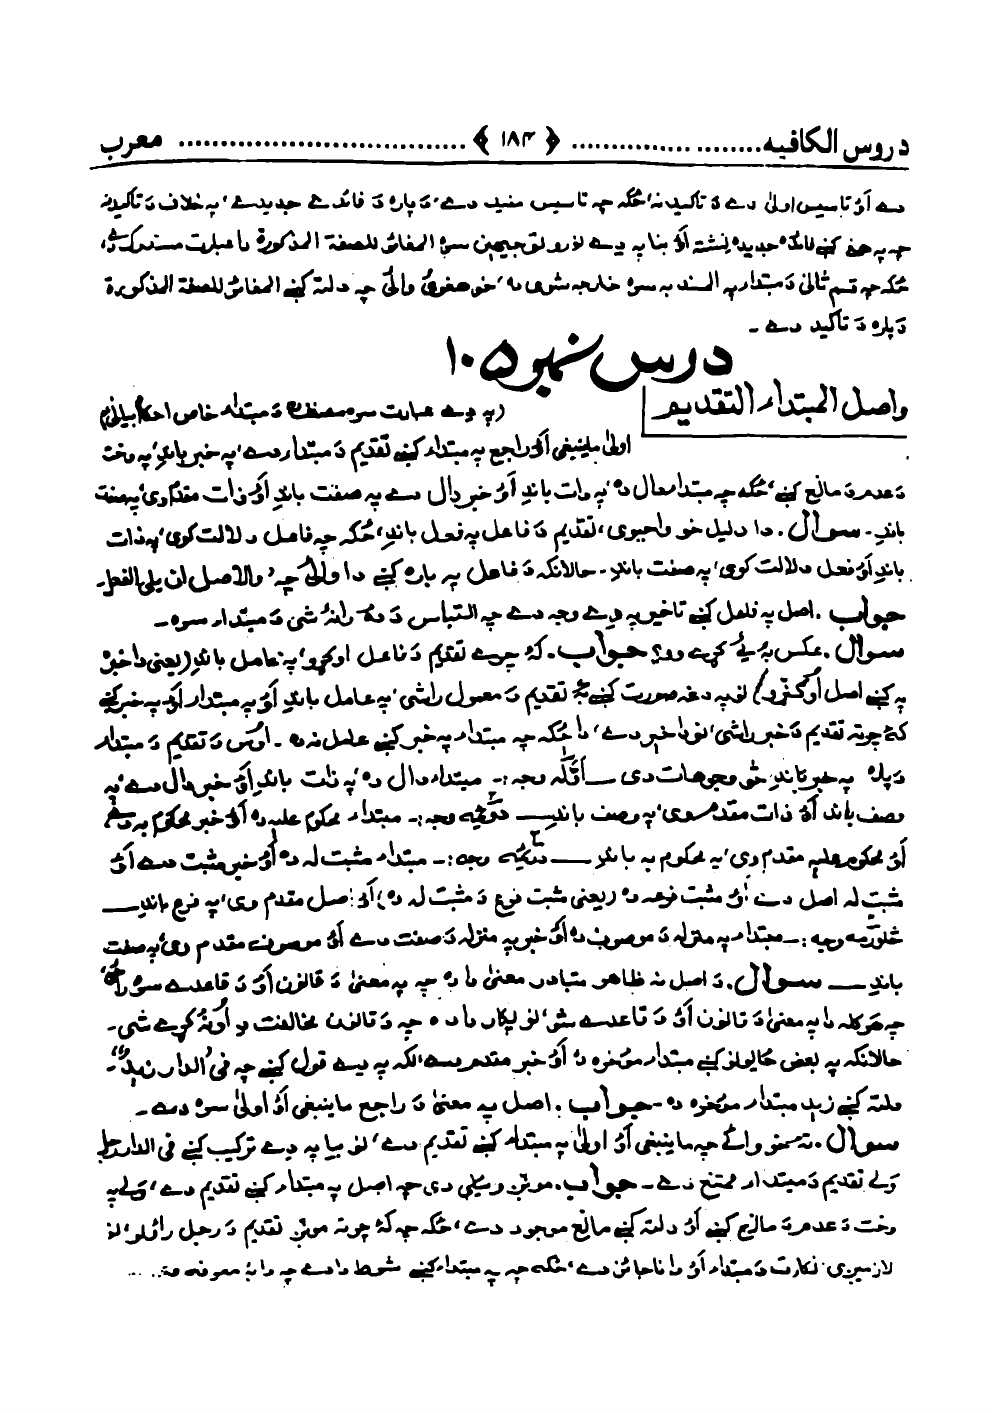 دروس الکافیه ........ ﴿ ۱۸۴ ﴾ ........ معرب
دے اؤ تاسیس اولیٰ دے دَ تاکید نہ ځکه چه تاسیس مفید دے، دَ پاره دَ فائدے جدیدے، په خلاف دَ تاکید نہ
چه په هغے کښے فائده جدیده نشته اؤ بنا په دے لازم توجیهین سره المغائر للصفة المذکورة دا عبارت مستدرک
ځکه چه قسم ثانی دَ مبتداء په المسند به سره خارجه شوی ده، خو صغریٰ وائی چه دلته کښے المغائر للصفة المذکورة
دَ پاره دَ تاکید دے ۔
درس نمبر ۱۰۵
واصل المبتداء التقدیم
(په دے عبارت سره مصنف دَ مبتداء خاص احکام بیانوی)
اولیٰ ماینبغی اؤ راجع په مبتداء کښے تقدیم دَ مبتداء دے، په خبر باندِ، په وخت
دَ عدم دَ مانع کښے، ځکه چه مبتداء دال ده، په ذات باندِ اؤ خبر دال دے په صفت باندِ اؤ ذات مقدم وی، په صفت
باندِ ۔ سوال . دا دلیل خو واجبوی، تقدیم دَ فاعل په فعل باندِ، ځکه چه فاعل دلالت کوی، په ذات
باندِ اؤ فعل دلالت کوی، په صفت باندِ ۔ حالانکه دَ فاعل په باره کښے دا وائی چه، والاصل ان یلی الفعل۔
جواب . اصل په فاعل کښے تاخیر په دِے وجه دے چه التباس دَ ده رانۂ شی دَ مبتداء سره ۔
سوال . عکس بۂ ئے کړے وو؟ جواب . کۂ چرے تقدیم دَ فاعل اوکړو، په عامل باندِ (یعنی دا حق
په کښے اصل اوګنړو) نو په دغه صورت کښے به تقدیم دَ معمول راشی، په عامل باندِ اؤ په مبتداء اؤ په خبر کښے
کۂ چرته تقدیم دَ خبر راشی، نو با خبر دے، دا ځکه چه مبتداء په خبر کښے عامل نه ده ۔ اوس دَ تقدیم دَ مبتداء
دَ پاره په خبر باندِ څو وجوهات دی ـــ اوّله وجه :ـ مبتداء دال ده، په ذات باندِ اؤ خبر دال دے، په
وصف باندِ اؤ ذات مقدم وی، په وصف باندِ ـــ دوئمه وجه :ـ مبتداء محکوم علیه ده اؤ خبر محکوم به دے
اؤ محکوم علیه مقدم وی، په محکوم به باندِ ـــ دریمه وجه :ـ مبتداء مثبت له ده اؤ خبر مثبت دے اؤ
مثبت له اصل دے اؤ مثبت فرعه ده (یعنی مثبت فرع دَ مثبت له ده) اؤ اصل مقدم وی، په فرع باندِ ـــ
څلورمه وجه :ـ مبتداء په منزله دَ موصوف ده اؤ خبر په منزله دَ صفت دے اؤ موصوف مقدم وی، په صفت
باندِ ـــ سوال . دَ اصل نه ظاهر متبادر معنیٰ دا ده چه په معنیٰ دَ قانون اؤ دَ قاعدے سره
چه هرکله دا په معنیٰ دَ قانون اؤ دَ قاعدے شو، نو پکار دا ده چه دَ قانون مخالفت دِ اونۂ کړے شی ۔
حالانکه په بعض ځایونو کښے مبتداء مؤخره ده اؤ خبر مقدم دے، لکه په دے قول کښے چه فی الدار زید۔
دلته کښے زید مبتداء مؤخره ده ۔ جواب . اصل په معنیٰ دَ راجع ماینبغی اؤ اولیٰ سره دے ۔
سوال . ته خو وائے چه ماینبغی اؤ اولیٰ په مبتداء کښے تقدیم دے، نو بیا په دِے ترکیب کښے فی الدار رجل
وَلے تقدیم دَ مبتداء ممتنع دے ۔ جواب . مونږ ویلی دی چه اصل په مبتداء کښے تقدیم دے، وَلے په
وخت دَ عدم دَ مانع کښے اؤ دلته کښے مانع موجود دے، ځکه چه کۂ چرته مونږ تقدیم دَ رجل راولو، نو
لازمیږی نکارت دَ مبتداء اؤ دا ناجائز دے، ځکه چه په مبتداء کښے شرط دا دے چه دا بۂ معرفه وی.. ...